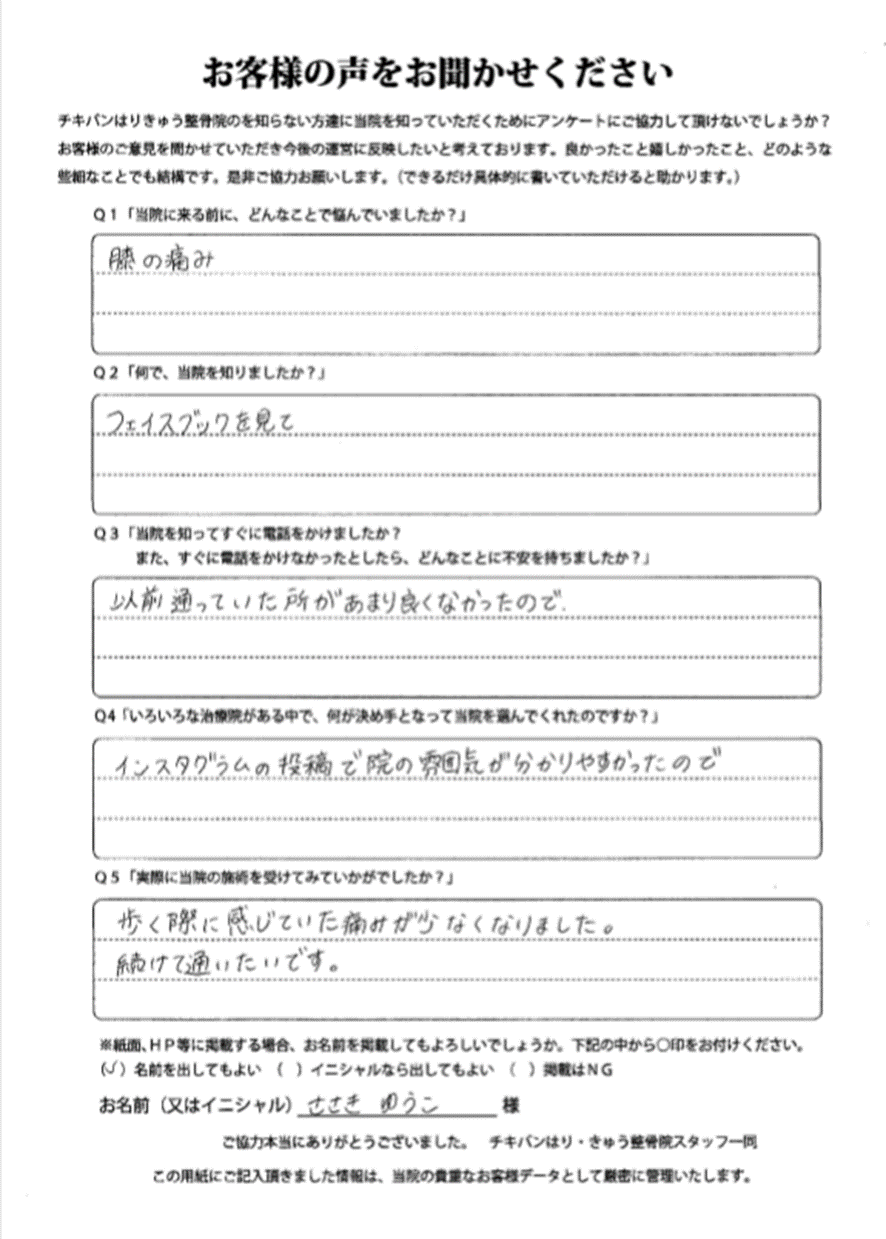 お客様の声をお聞かせください
チキバンはりきゅう整骨院のを知らない方達に当院を知っていただくためにアンケートにご協力して頂けないでしょうか？
お客様のご意見を聞かせていただき今後の運営に反映したいと考えております。良かったこと嬉しかったこと、どのような
些細なことでも結構です。是非ご協力お願いします。（できるだけ具体的に書いていただけると助かります。）
Q1「当院に来る前に、どんなことで悩んでいましたか？」
膝の痛み
Q2「何で、当院を知りましたか？」
フェイスブックを見て
Q3「当院を知ってすぐに電話をかけましたか？
また、すぐに電話をかけなかったとしたら、どんなことに不安を持ちましたか？」
以前通っていた所があまり良くなかったので.
Q4「いろいろな治療院がある中で、何が決め手となって当院を選んでくれたのですか？」
インスタグラムの投稿で院の雰囲気が分かりやすかったので
Q5「実際に当院の施術を受けてみていかがでしたか？」
歩く際に感じていた痛みが少なくなりました。
続けて通いたいです。
※紙面、HP等に掲載する場合、お名前を掲載してもよろしいでしょうか。下記の中から〇印をお付けください。
（✓）名前を出してもよい （ ）イニシャルなら出してもよい （ ）掲載はNG
お名前（又はイニシャル） ささき ゆうこ 様
ご協力本当にありがとうございました。 チキバンはり・きゅう整骨院スタッフ一同
この用紙にご記入頂きました情報は、当院の貴重なお客様データとして厳密に管理いたします。